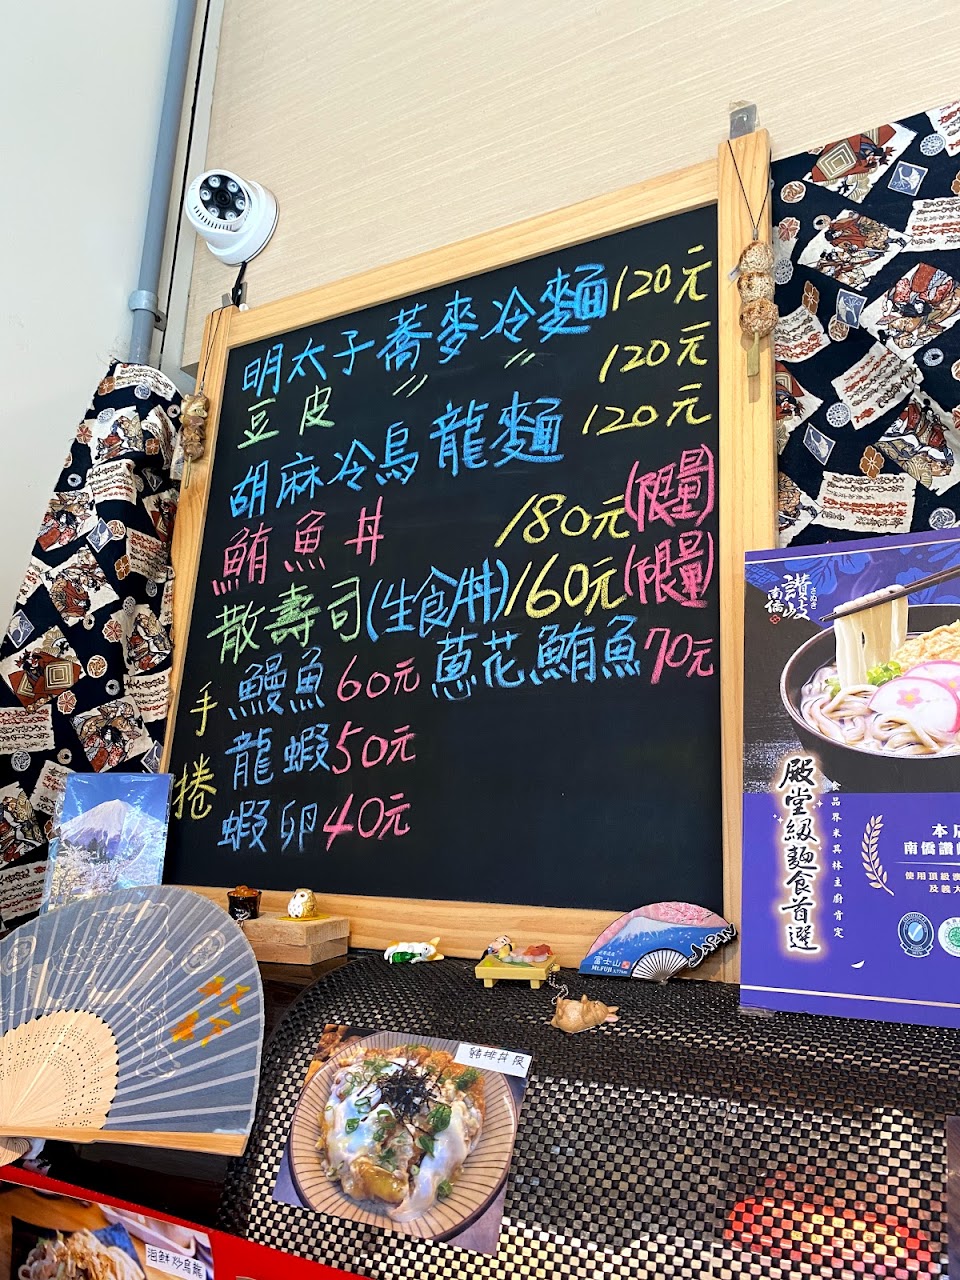 明太子蕎麥冷麵120元
豆皮 〃 〃 120元
胡麻冷烏龍麵120元
鮪魚丼 180元(限量)
散壽司(生食丼)160元(限量)
手捲
鰻魚60元 蔥花鮪魚70元
龍蝦50元
蝦卵40元
南僑
讚岐
さぬき
殿堂級麵食首選
食品界米其林主廚肯定
本店
南僑讚岐
使用頂級澳
及義大
富士山
Mt.FUJI
JAPAN
豬排丼飯
海鮮炒烏龍